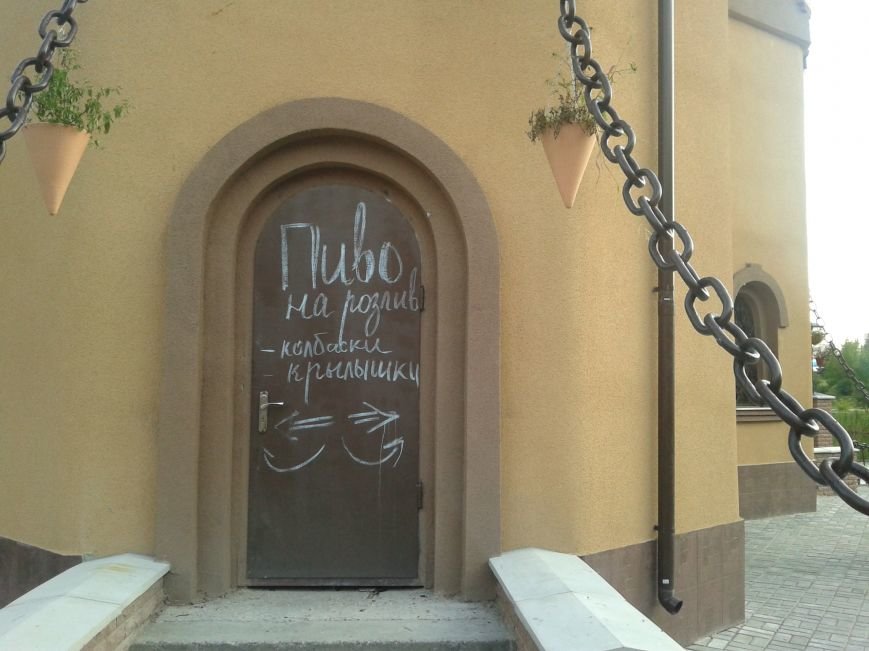 Пиво
на розлив
- колбаски
- крылышки